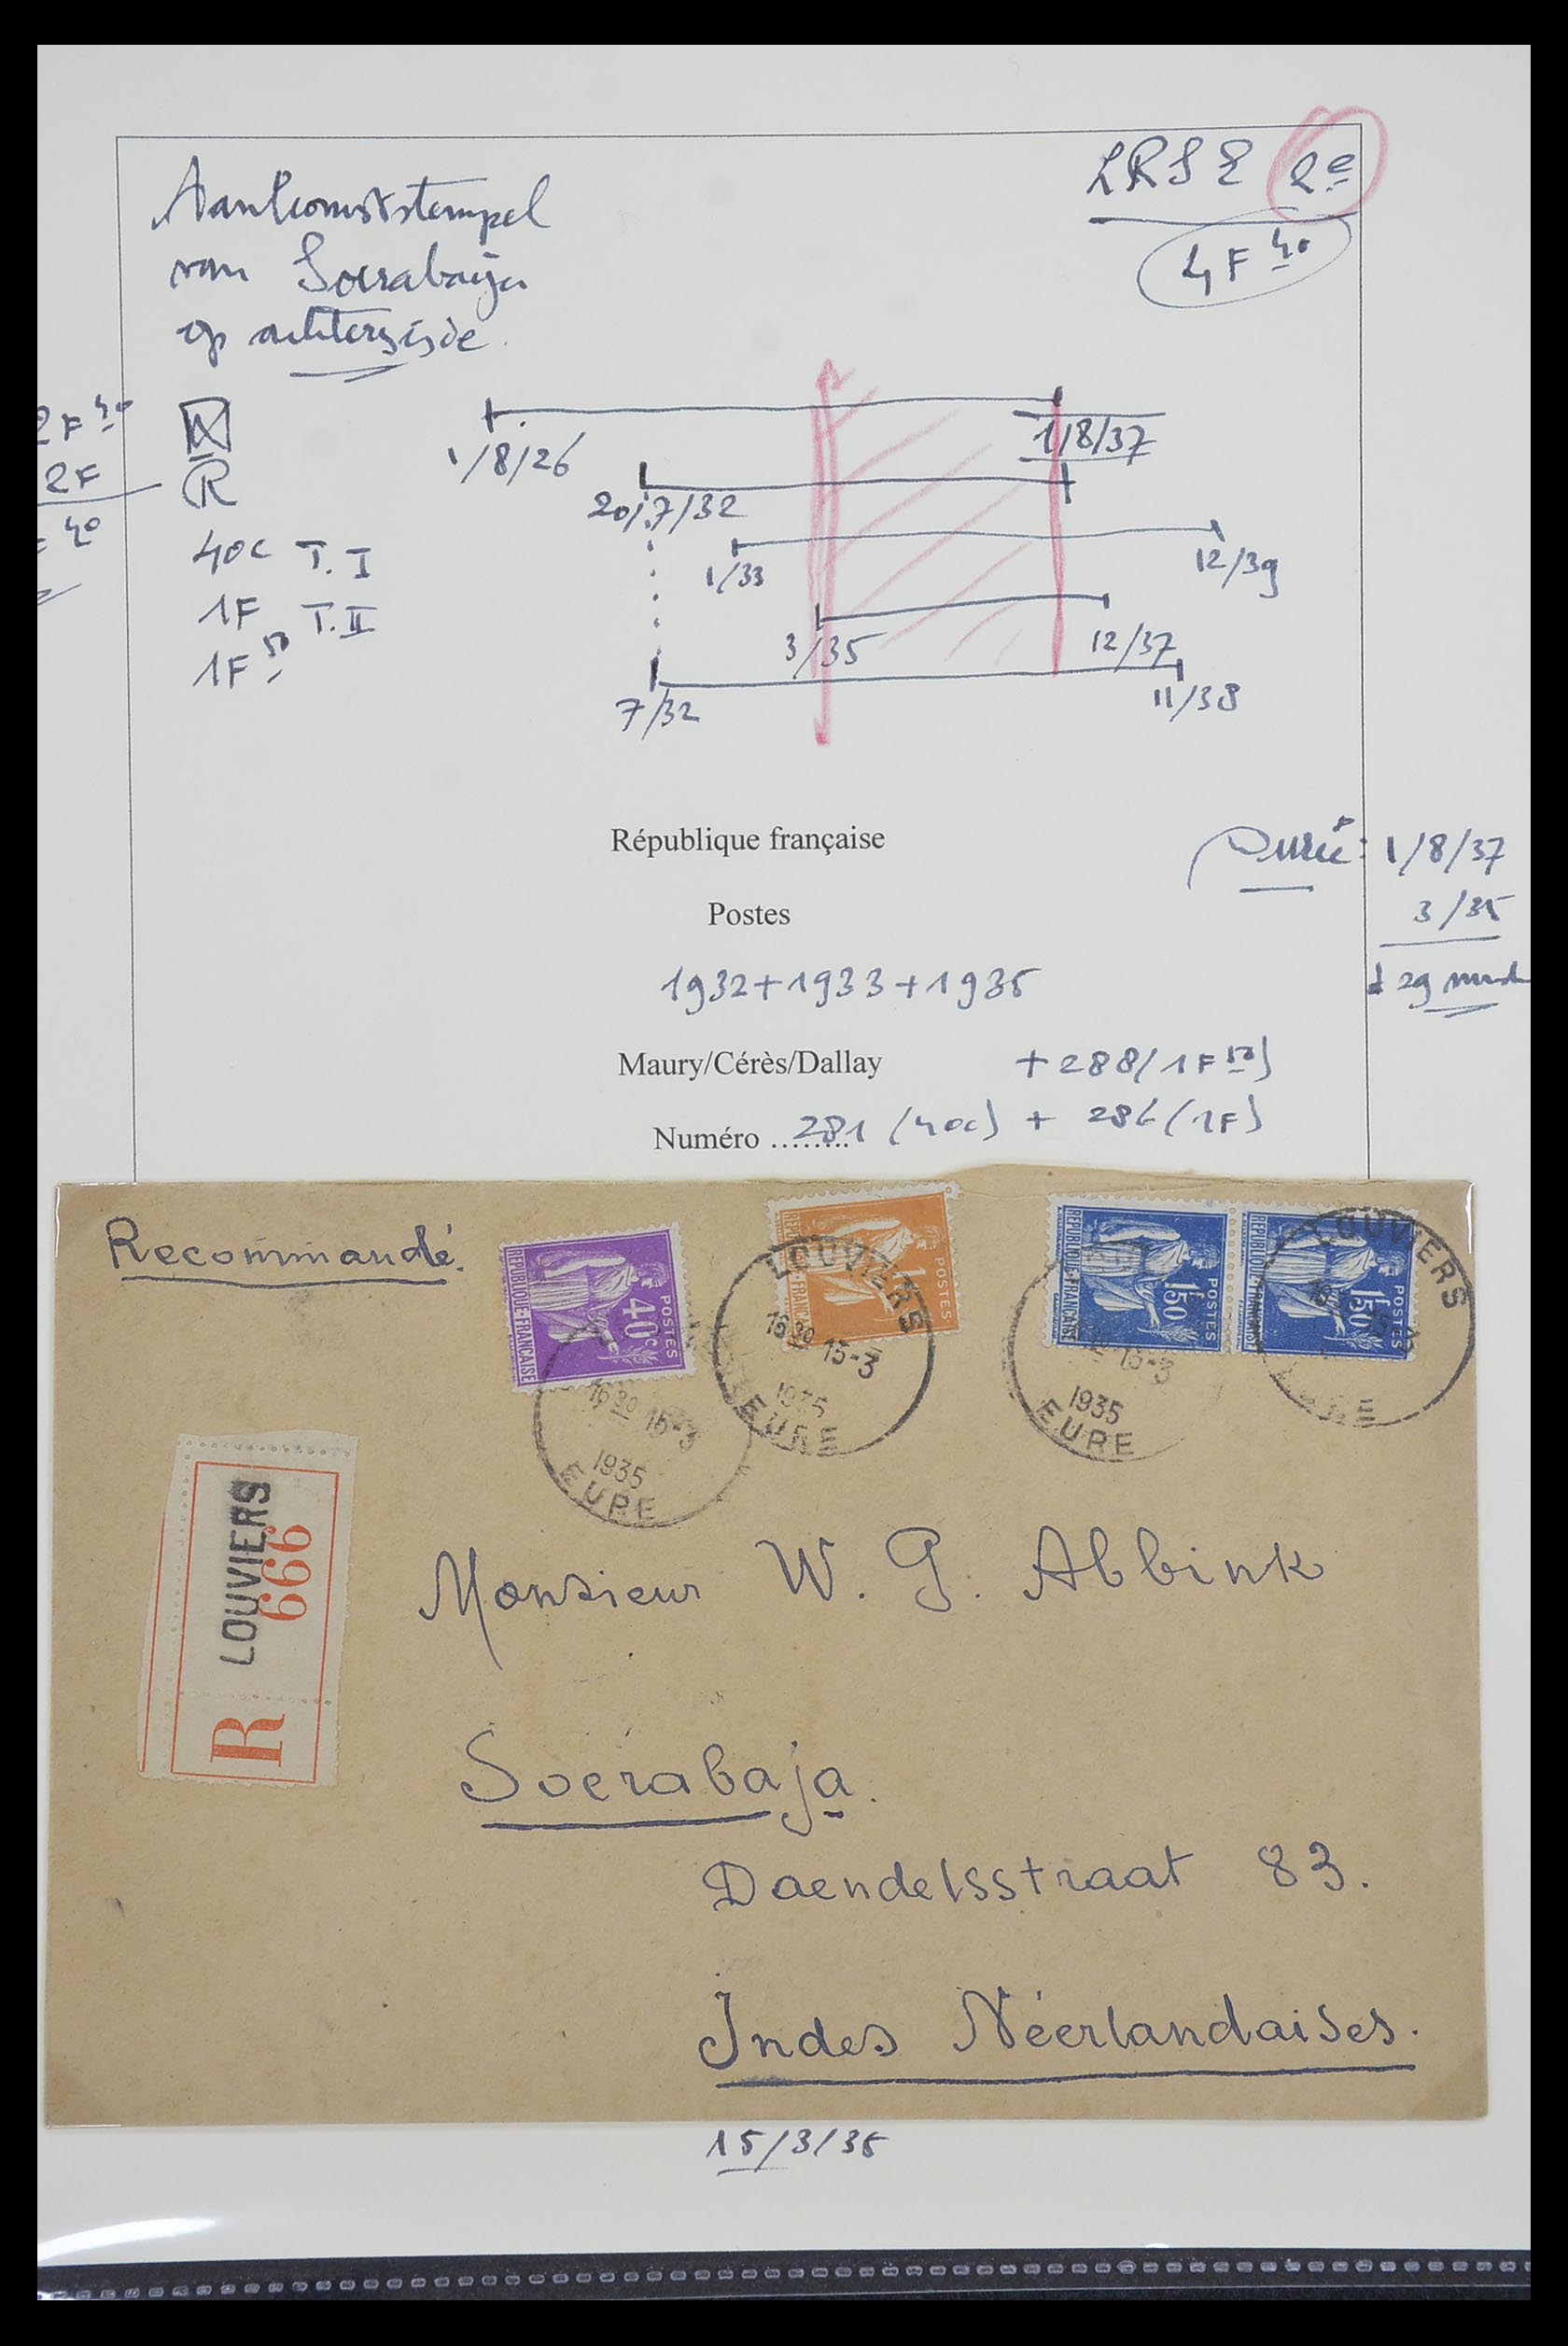 Aankomststempel
van Soerabaija
op achterzijde.
LRSE 2e
4F 40
2F 40
2F
40
R
40c T.I
1F T.II
1F 50
1/8/26
1/8/37
20/7/32
1/33
12/39
3/35
12/37
7/32
11/38
République française
Postes
1932+1933+1935
Durée: 1/8/37
3/35
29
Maury/Cérès/Dallay + 288 (1F 50)
Numéro ........ 281 (40c) + 286 (1F)
Recommandé.
POSTES
40c
REPUBLIQUE·FRANÇAISE
POSTES
1F
LOUVIERS
16 30 15-3
1935
EURE
16 30 15-3
1935
EURE
REPUBLIQUE·FRANÇAISE
POSTES
1F50
POSTES
1F50
15-3
1935
EURE
LOUVIERS
EURE
R LOUVIERS
666
Monsieur W. G. Abbink
Soerabaja.
Daendelsstraat 83.
Indes Néerlandaises.
15/3/35